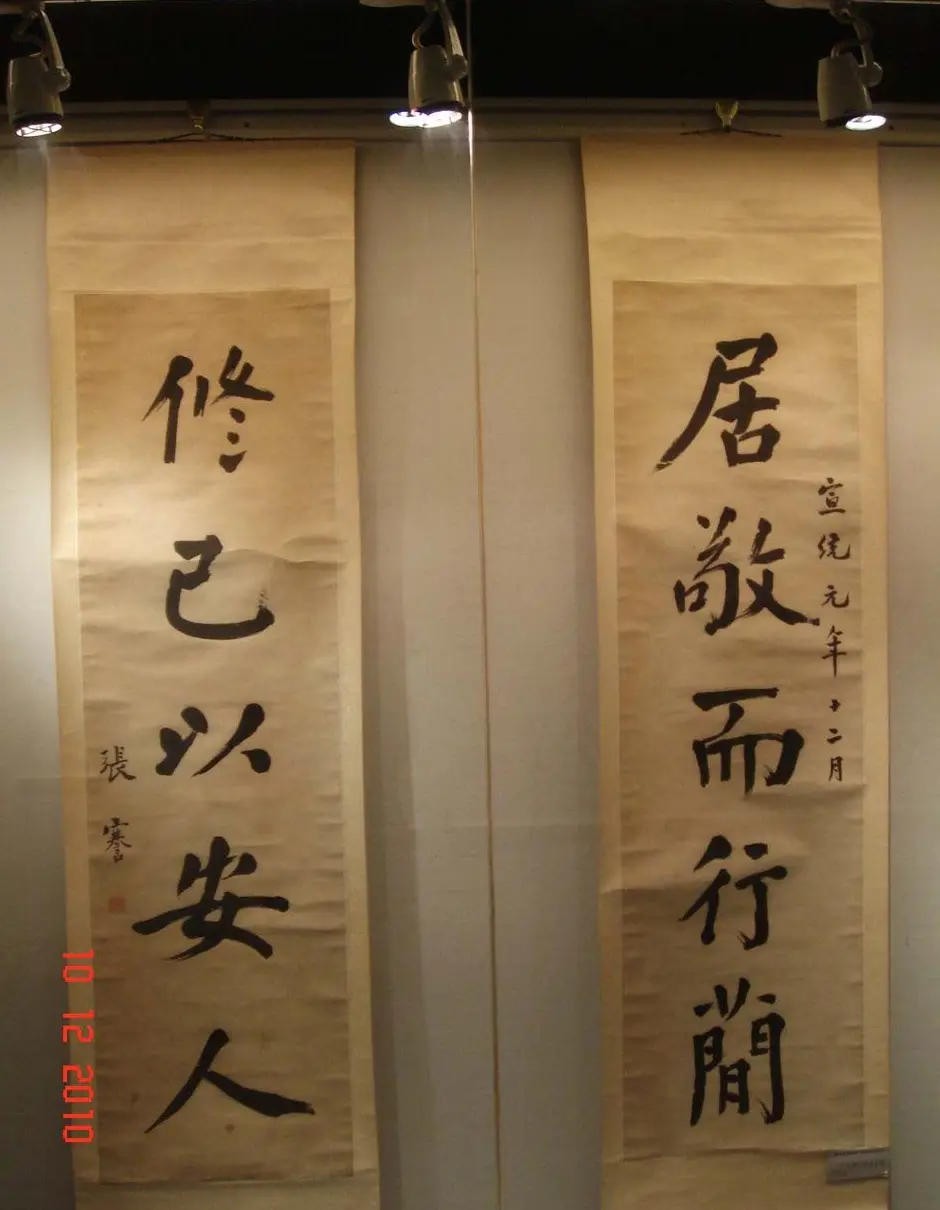 居敬而行簡
宣統元年十二月
修己以安人
張謇
10 12 2010